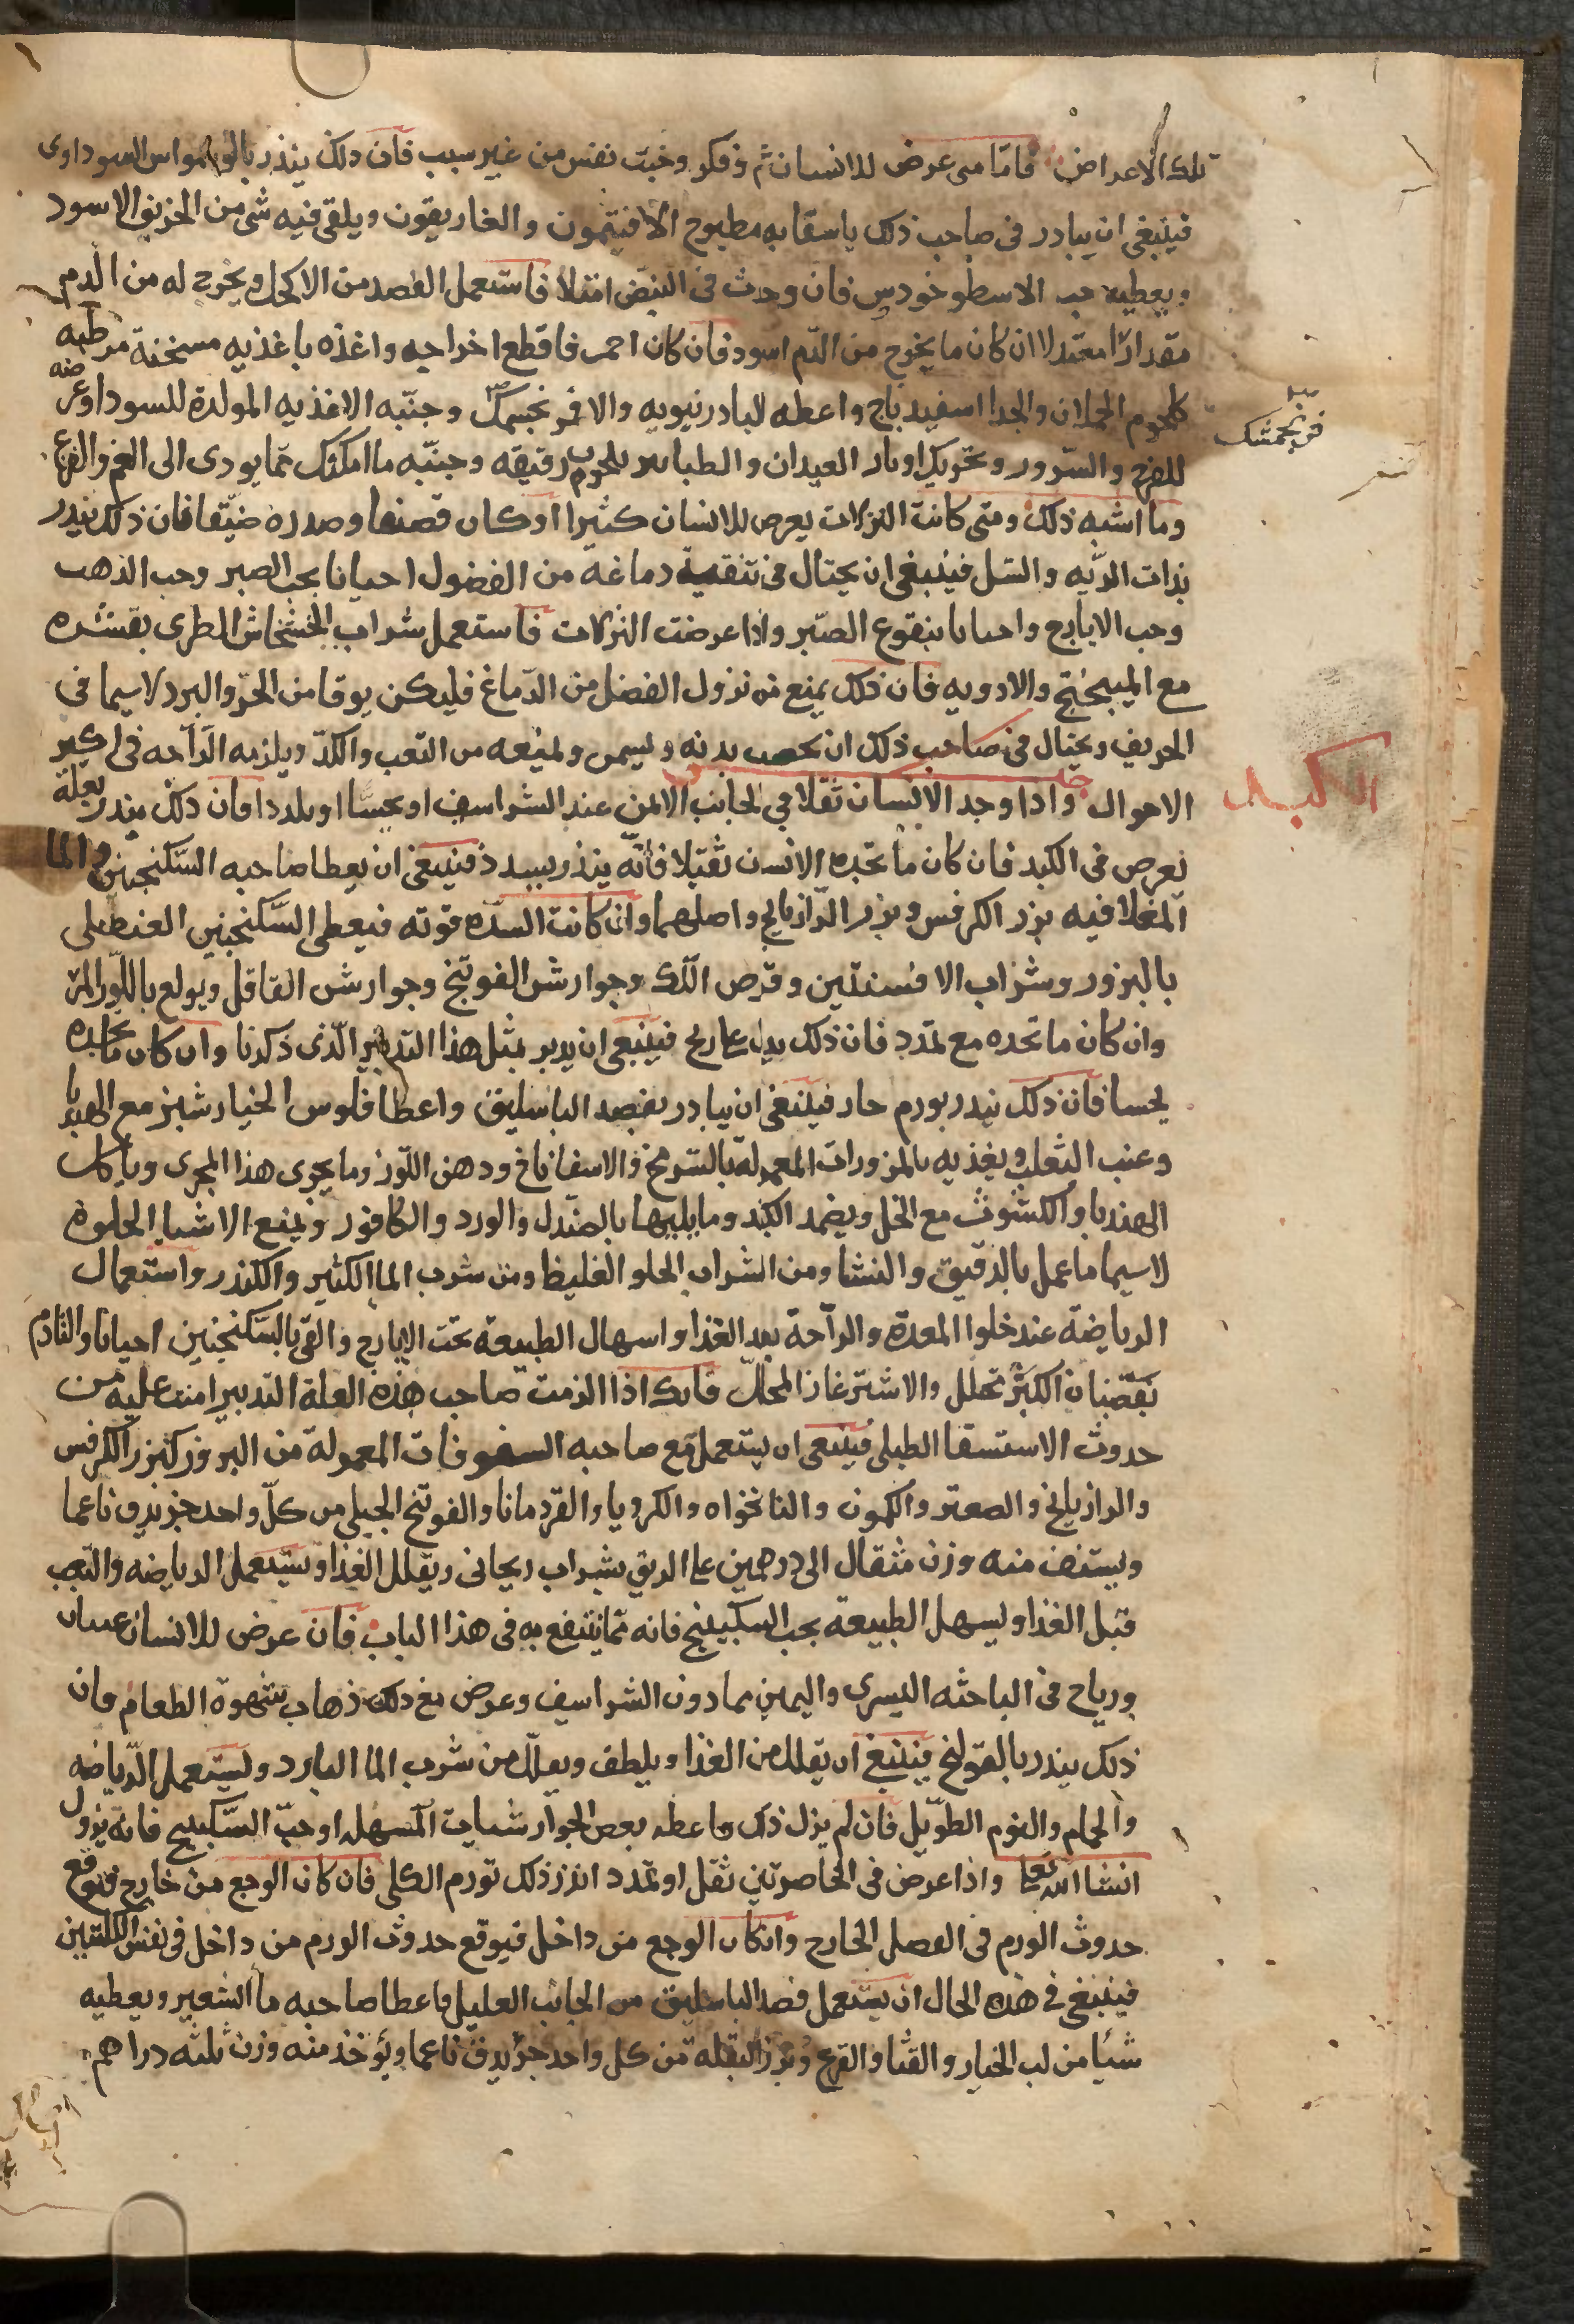 تلك الاعراض فاما متى عرض للانسان غم وفكر وخبث نفس من غير سبب فان ذلك ينذر بالوسواس السوداوى
فينبغى ان يبادر فى صاحب ذلك باسقايه مطبوخ الافتيمون والغاريقون ويلقى فيه شى من الخربق الاسود
ويعطيه حب الاسطوخودس فان وجدت فى النبض امتلا فاستعمل الفصد من الاكحل ويخرج له من الدم
مقدارا معتدلا ان كان ما يخرج من الدم اسود فان كان احمر فاقطع اخراجه واغذه باغذيه مسخنة مرطبه
كلحوم الحملان والجدا اسفيدباج واعطه البادرنبويه والافرنجمسك وجنبه الاغذيه المولدة للسودا وعرضه
فرنجمشك
للفرح والسرور وتحريك اوتار العيدان والطنابير بلحون رقيقه وجنبه ما امكنك مما يودى الى الغم والفزع
وما اشبه ذلك ومتى كانت النزلات يعرض للانسان كثيرا او كان قضفا وصدره ضيقا فان ذلك ينذر
بذات الريه والسل فينبغى ان يحتال فى تنقية دماغه من الفضول احيانا بحب الصبر وحب الذهب
وحب الايارج واحيانا بنقوع الصبر واذا عرضت النزلات فاستعمل شراب الخشخاش الطرى بقشره
مع الميبختج والادويه فان ذلك يمنع من نزول الفضل من الدماغ فليكن يوقا من الحر والبرد لاسيما فى
الخريف ويحتال فى صاحب ذلك ان يخصب بدنه ويسمن ولمنعه من التعب والكد ويلزمه الراحه فى اكثر
الكبد
الاحوال واذا وجد الانسان ثقلا فى الجانب الايمن عند الشراسيف او نخسا او تمددا فان ذلك ينذر بعلة
تعرض فى الكبد فان كان ما تجده الانسن ثقيلا فانه ينذر بسدد فينبغى ان يعطا صاحبه السكنجبين والما
المغلا فيه بزر الكرفس وبزر الرازيانج واصلهما وان كانت السده قويه فيعطى السكنجبين العنصلى
بالبزور وشراب الافسنتين وقرص اللك وجوارش الفوتنج وجوارش الفلافل ويولع باللوز المر
وان كان ما تجده مع تمدد فان ذلك يدل على ريح فينبغى ان يدبر بمثل هذا التدبير الذى ذكرنا وان كان ما تجده
نخسا فان ذلك ينذر بورم حار فينبغى ان يبادر بفصد الباسليق واعطا فلوس الخيار شنبر مع الهندبا
وعنب الثعلب ويغذيه بالمزورات المعموله بالسرمخ والاسفاناخ ودهن اللوز وما يجرى هذا المجرى وياكل
الهندبا والكشوث مع الخل ويضمد الكبد وما يليها بالصندل والورد والكافور ويمنع الاشيا الحلوة
لاسيما ما عمل بالدقيق والنشا ومن الشراب الحلو الغليظ ومن شرب الما الكثير والكندر واستعمال
الرياضة عند خلوا المعدة والراحة بعد الغذا واسهال الطبيعة بحب الايارج والقى بالسكنجبين احيانا والتادم
بقضبان الكبر بخلل والاشترغاز المخلل فانك اذا الزمت صاحب هذه العلة التدبير امنت عليه من
حدوث الاستسقا الطبلى فينبغى ان يستعمل مع صاحبه السفوفات المعمولة من البزور كبزر الكرفس
والرازيانج والصعتر والكمون والنانخواه والكرويا والقردمانا والفوتنج الجبلى من كل واحد جز يدق ناعما
ويستف منه وزن مثقال الى درهمين على الريق بشراب ريحانى ويقلل الغذا ويستعمل الرياضه والتعب
قبل الغذا ويسهل الطبيعة بحب السكبينج فانه مما ينتفع به فى هذا الباب فان عرض للانسان غثيان
ورياح فى الناحيه اليسرى واليمين مما دون الشراسيف وعرض مع ذلك ذهاب شهوة الطعام فان
ذلك ينذر بالقولنج فينبغى ان يقلل من الغذا ويلطف ويقلل من شرب الما البارد ويستعمل الرياضه
والحمام والنوم الطويل فان لم يزل ذلك فاعطه بعض الجوارشنات المسهله او حب السكبينج فانه يزول
انشا الله تعالى واذا عرض فى الخاصرتين ثقل او تمدد انذر ذلك تورم الكلى فان كان الوجع من خارج فتوقع
حدوث الورم فى العضل الخارج وان كان الوجع من داخل فيوقع حدوث الورم من داخل فى نفس الكليتين
فينبغى فى هذه الحال ان يستعمل فصد الباسليق من الجانب العليل واعطا صاحبه ما الشعير ويعطيه
شيا من لب الخيار والقثا والقرع وبزر البقله من كل واحد جز يدق ناعما ويؤخذ منه وزن ثلثه دراهم